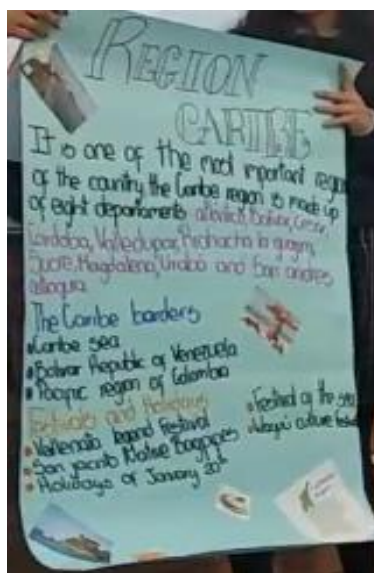 REGION
CARIBE
It is one of the most important region
of the country the Caribe region is made up
of eight departaments atlantico, Bolivar, Cesar,
Cordoba, Valledupar, Riohacha la guajira,
Sucre, Magdalena, Uraba and San andres
The Caribe borders
Caribe sea
Bolivar Republic of Venezuela
Pacific region of Colombia
Festivals and Holidays
Vallenato legend Festival
San jacinto Native Bagpipes
Holidays of January 20th
Festival of the sea
Wayu culture festival